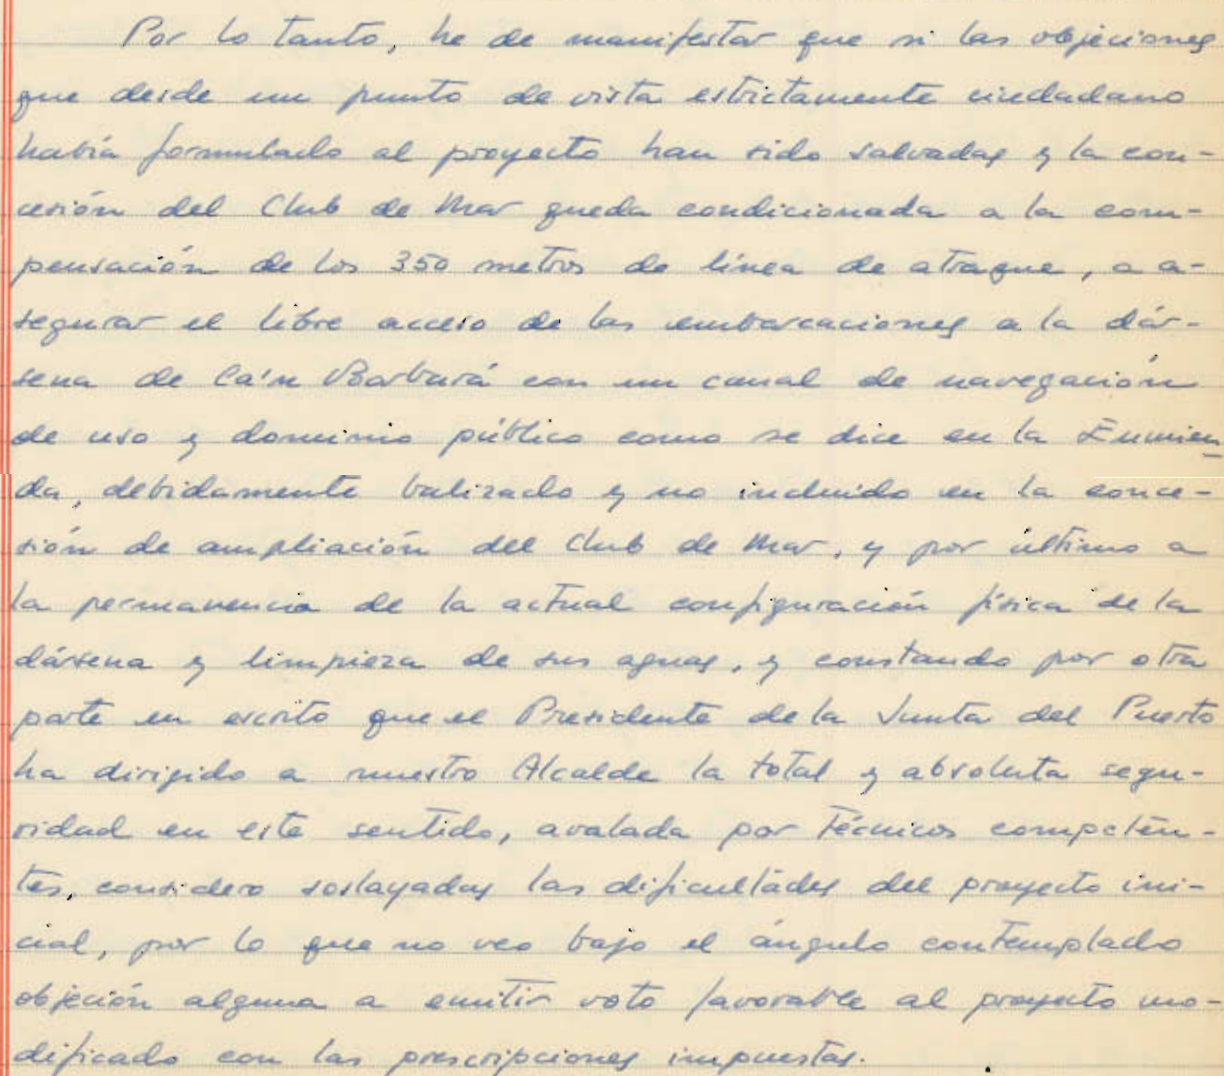 Por lo tanto, he de manifestar que si las objeciones
que desde un punto de vista estrictamente ciudadano
había formulado al proyecto han sido salvadas y la con-
cesión del Club de Mar queda condicionada a la com-
pensación de los 350 metros de línea de atraque, a a-
segurar el libre acceso de las embarcaciones a la dár-
sena de Ca'n Barbará con un canal de navegación
de uso y dominio público como se dice en la Enmien-
da, debidamente balizado y no incluido en la conce-
sión de ampliación del Club de Mar, y por último a
la permanencia de la actual configuración física de la
dársena y limpieza de sus aguas, y constando por otra
parte en escrito que el Presidente de la Junta del Puerto
ha dirigido a nuestro Alcalde la total y absoluta segu-
ridad en este sentido, avalada por Técnicos competen-
tes, considero soslayadas las dificultades del proyecto ini-
cial, por lo que no veo bajo el ángulo contemplado
objeción alguna a emitir voto favorable al proyecto mo-
dificado con las prescripciones impuestas.